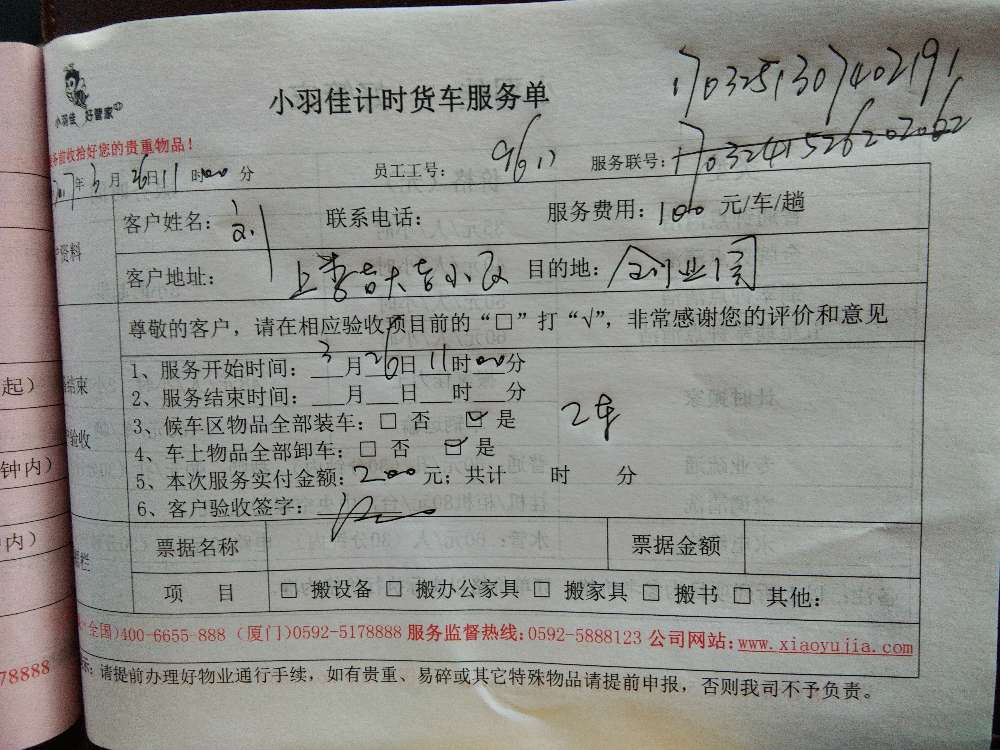 小羽佳 好管家
小羽佳计时货车服务单
1703251307402191
务前收拾好您的贵重物品！
1703241526202062
2017年3月26日11时00分
员工工号：
服务联号：
客户姓名：
联系电话：
服务费用：100元/车/趟
资料
客户地址：
目的地：
尊敬的客户，请在相应验收项目前的“□”打“√”，非常感谢您的评价和意见
1、服务开始时间：3月26日11时00分
结束
2、服务结束时间：___月___日___时___分
3、候车区物品全部装车：□ 否 ☑ 是
2车
验收
4、车上物品全部卸车：□ 否 ☑ 是
5、本次服务实付金额：200元；共计 时 分
6、客户验收签字：
票据名称
票据金额
栏
项 目
□ 搬设备 □ 搬办公家具 □ 搬家具 □ 搬书 □ 其他：
全国)400-6655-888（厦门)0592-5178888 服务监督热线:0592-5888123 公司网站:www.xiaoyujia.com
示：请提前办理好物业通行手续，如有贵重、易碎或其它特殊物品请提前申报，否则我司不予负责。
起）
钟内）
内）
78888